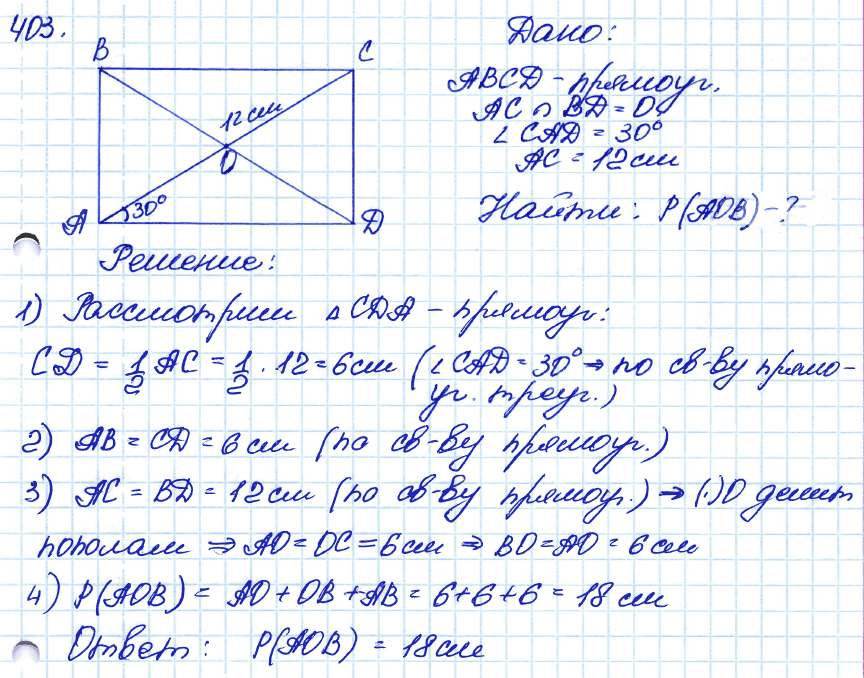 403.
B
C
12 см
O
A
30°
D
Дано:
ABCD - прямоуг.
AC ∩ BD = O
∠ CAD = 30°
AC = 12 см
Найти: P(AOB) - ?
Решение:
1) Рассмотрим ▵ CDA - прямоуг:
CD = 1/2 AC = 1/2 · 12 = 6 см (∠ CAD = 30° ⇒ по св-ву прямо-
уг. треуг.)
2) AB = CD = 6 см (по св-ву прямоуг.)
3) AC = BD = 12 см (по св-ву прямоуг.) ⇒ (·) O делит
пополам ⇒ AO = OC = 6 см ⇒ BO = AO = 6 см
4) P(AOB) = AO + OB + AB = 6 + 6 + 6 = 18 см
Ответ: P(AOB) = 18 см